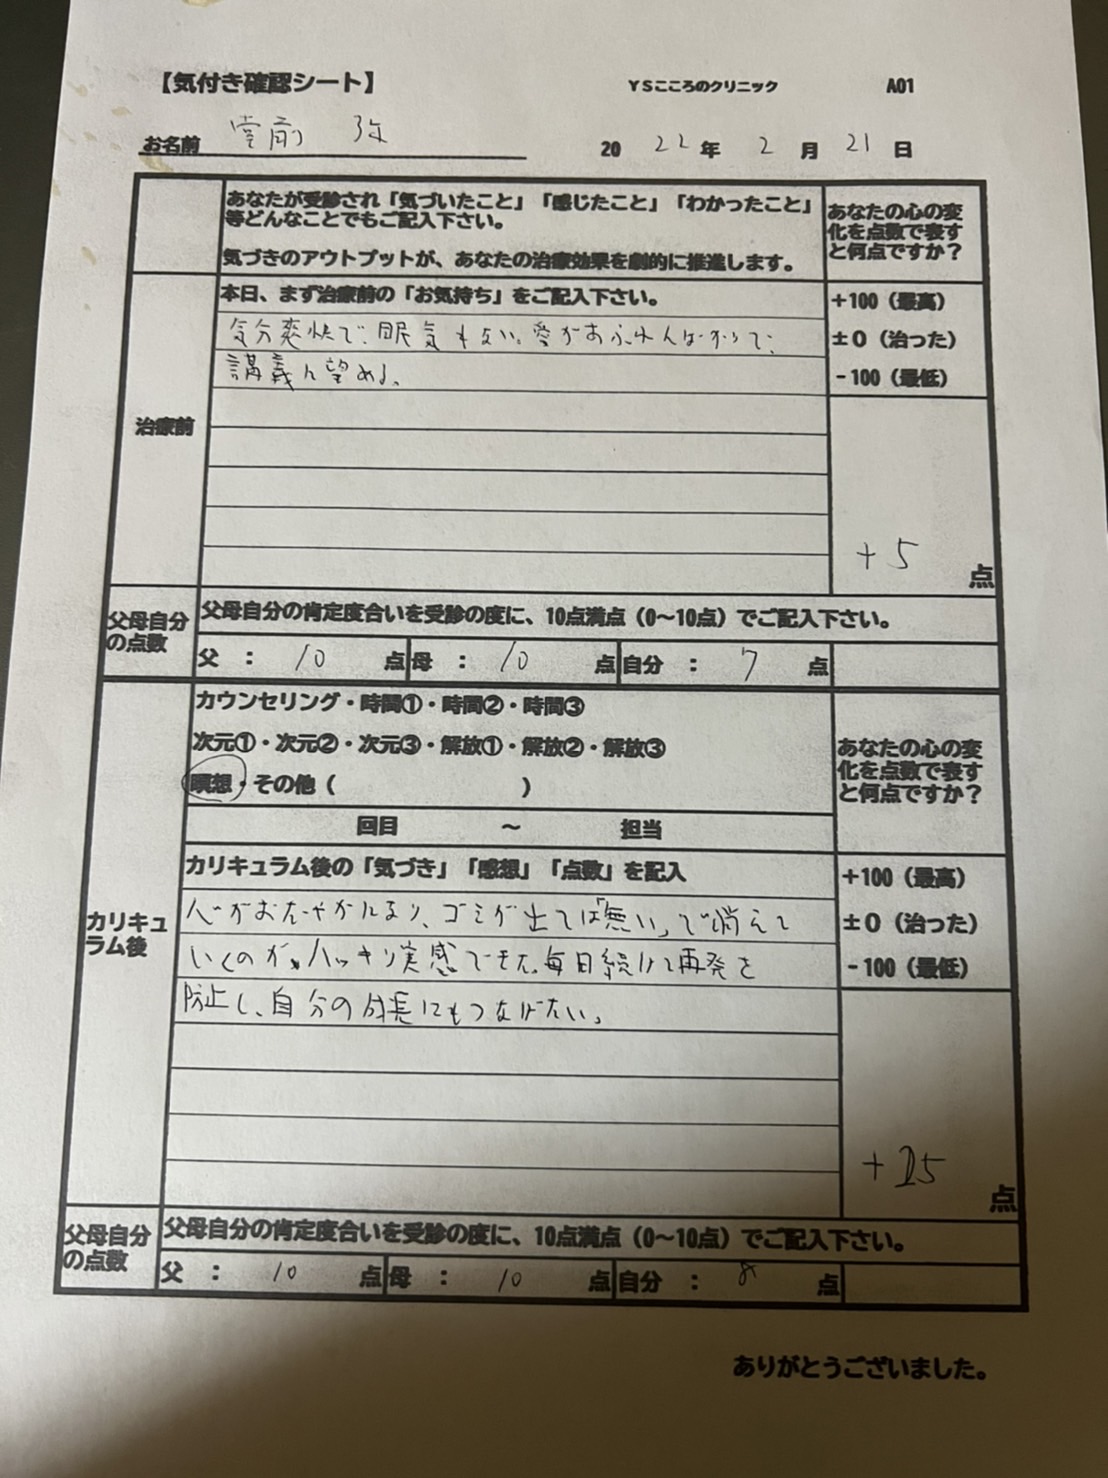 【気付き確認シート】 YSこころのクリニック A01
お名前 堂前 弥 2022年 2月 21日
あなたが受診され「気づいたこと」「感じたこと」「わかったこと」
等どんなことでもご記入下さい。
気づきのアウトプットが、あなたの治療効果を劇的に推進します。
あなたの心の変
化を点数で表す
と何点ですか？
治療前
本日、まず治療前の「お気持ち」をご記入下さい。
気分爽快で、眠気もない。愛があふれんばかりで、
講義に望める。
+100（最高）
±0（治った）
-100（最低）
+5 点
父母自分
の点数
父母自分の肯定度合いを受診の度に、10点満点（0～10点）でご記入下さい。
父 ： 10 点 母 ： 10 点 自分 ： 7 点
カリキュ
ラム後
カウンセリング・時間①・時間②・時間③
次元①・次元②・次元③・解放①・解放②・解放③
瞑想・その他（ ）
回目 ～ 担当
あなたの心の変
化を点数で表す
と何点ですか？
カリキュラム後の「気づき」「感想」「点数」を記入
心がおだやかになり、ゴミが出ては「無い」で消えて
いくのが、ハッキリ実感できた。毎日続けて再発を
防止し、自分の成長にもつなげたい。
+100（最高）
±0（治った）
-100（最低）
点
父母自分
の点数
父母自分の肯定度合いを受診の度に、10点満点（0～10点）でご記入下さい。
父 ： 10 点 母 ： 10 点 自分 ： 8 点
ありがとうございました。